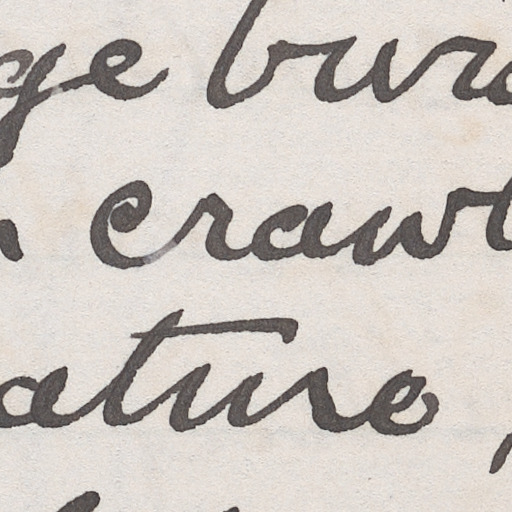 ge bur
crawl
ature,